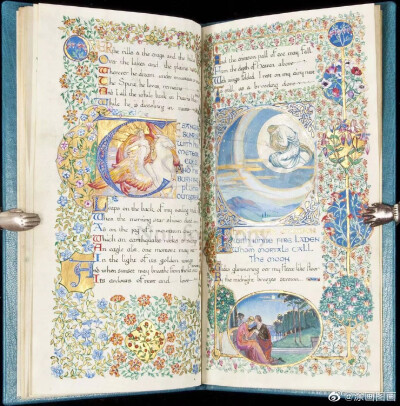 the rills & the crags and the hills
the lakes and the plains
Wherever he dream, under mountain
The Spirit he loves, remains
And I all the while bask in Heaven's
While he is dissolving in
SANGUINE
SUNRISE
WITH HIS
METEOR
EYES
AND HIS
BURNING
PLUMES
Leaps on the back of my sailing
When the morning star shines
As on the jag of a mountain
Which an earthquake rocks
An eagle alit one moment may
In the light of its golden wings
when sunset may breathe from the lit sea
Its ardours of rest and love
And the crimson pall of eve may fall
From the depth of Heaven above
With wings folded I rest on my airy nest
As still as a brooding dove
WITH WHITE FIRE LADEN
WHOM MORTALS CALL
THE MOON
Glides glimmering o'er my fleece-like floor
By the midnight breezes strewn